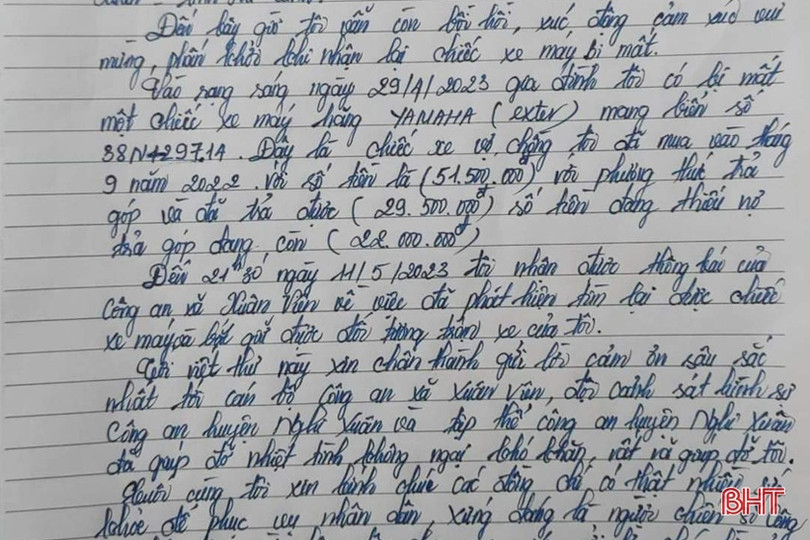 Đến bây giờ tôi vẫn còn bồi hồi, xúc động cảm xúc vui
mừng, phấn khởi khi nhận lại chiếc xe máy bị mất.
Vào rạng sáng ngày 29/4/2023 gia đình tôi có bị mất
một chiếc xe máy hãng YAMAHA (exter) mang biển số
38N1-297.14. Đây là chiếc xe vợ chồng tôi đã mua vào tháng
9 năm 2022 với số tiền là (51.500.000đ) với phương thức trả
góp và đã trả được (29.500.000đ) số tiền đang thiếu nợ
trả góp đang còn (22.000.000đ)
Đến 21h30 ngày 11/5/2023 tôi nhận được thông báo của
Công an xã Xuân Viên về việc đã phát hiện tìm lại được chiếc
xe máy và bắt giữ được đối tượng trộm xe của tôi.
Tôi viết thư này xin chân thành gửi lời cảm ơn sâu sắc
nhất tới cán bộ Công an xã Xuân Viên, đội cảnh sát hình sự
Công an huyện Nghi Xuân và tập thể công an huyện Nghi Xuân
đã giúp đỡ nhiệt tình không ngại khó khăn, vất vả giúp đỡ tôi.
cùng tôi xin kính chúc các đồng chí có thật nhiều sức
khỏe để phục vụ nhân dân, xứng đáng là người chiến sĩ Công
BHT